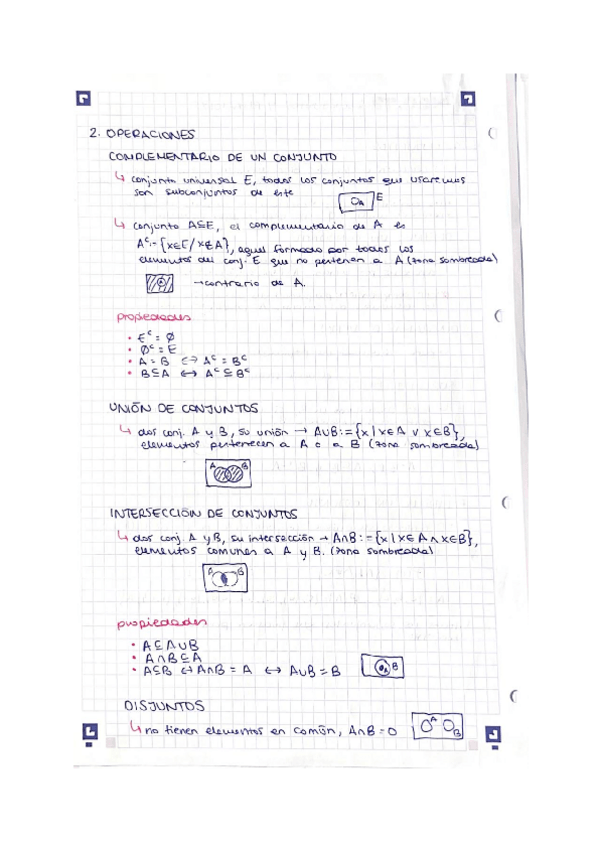 2. OPERACIONES
COMPLEMENTARIO DE UN CONJUNTO
↳ conjunto universal E, todos los conjuntos que usaremos
son subconjuntos de este
A E
↳ conjunto A⊆E, el complementario de A es
Aᶜ = {x∈E / x∉A}, aquel formado por todos los
elementos del conj. E que no pertenen a A (zona sombreada)
A
→ contrario de A.
propiedades
• Eᶜ = ∅
• ∅ᶜ = E
• A = B ⇔ Aᶜ = Bᶜ
• B⊆A ↔ Aᶜ ⊆ Bᶜ
UNIÓN DE CONJUNTOS
↳ dos conj. A y B, su unión → A∪B := {x | x∈A ∨ x∈B},
elementos pertenecen a A o a B (zona sombreada)
A B
INTERSECCIÓN DE CONJUNTOS
↳ dos conj. A y B, su intersección → A∩B := {x | x∈A ∧ x∈B},
elementos comunes a A y B. (zona sombreada)
A B
propiedades
• A⊆A∪B
• A∩B⊆A
• A⊆B ↔ A∩B = A ↔ A∪B = B
A B
DISJUNTOS
↳ no tienen elementos en común, A∩B = 0
A B